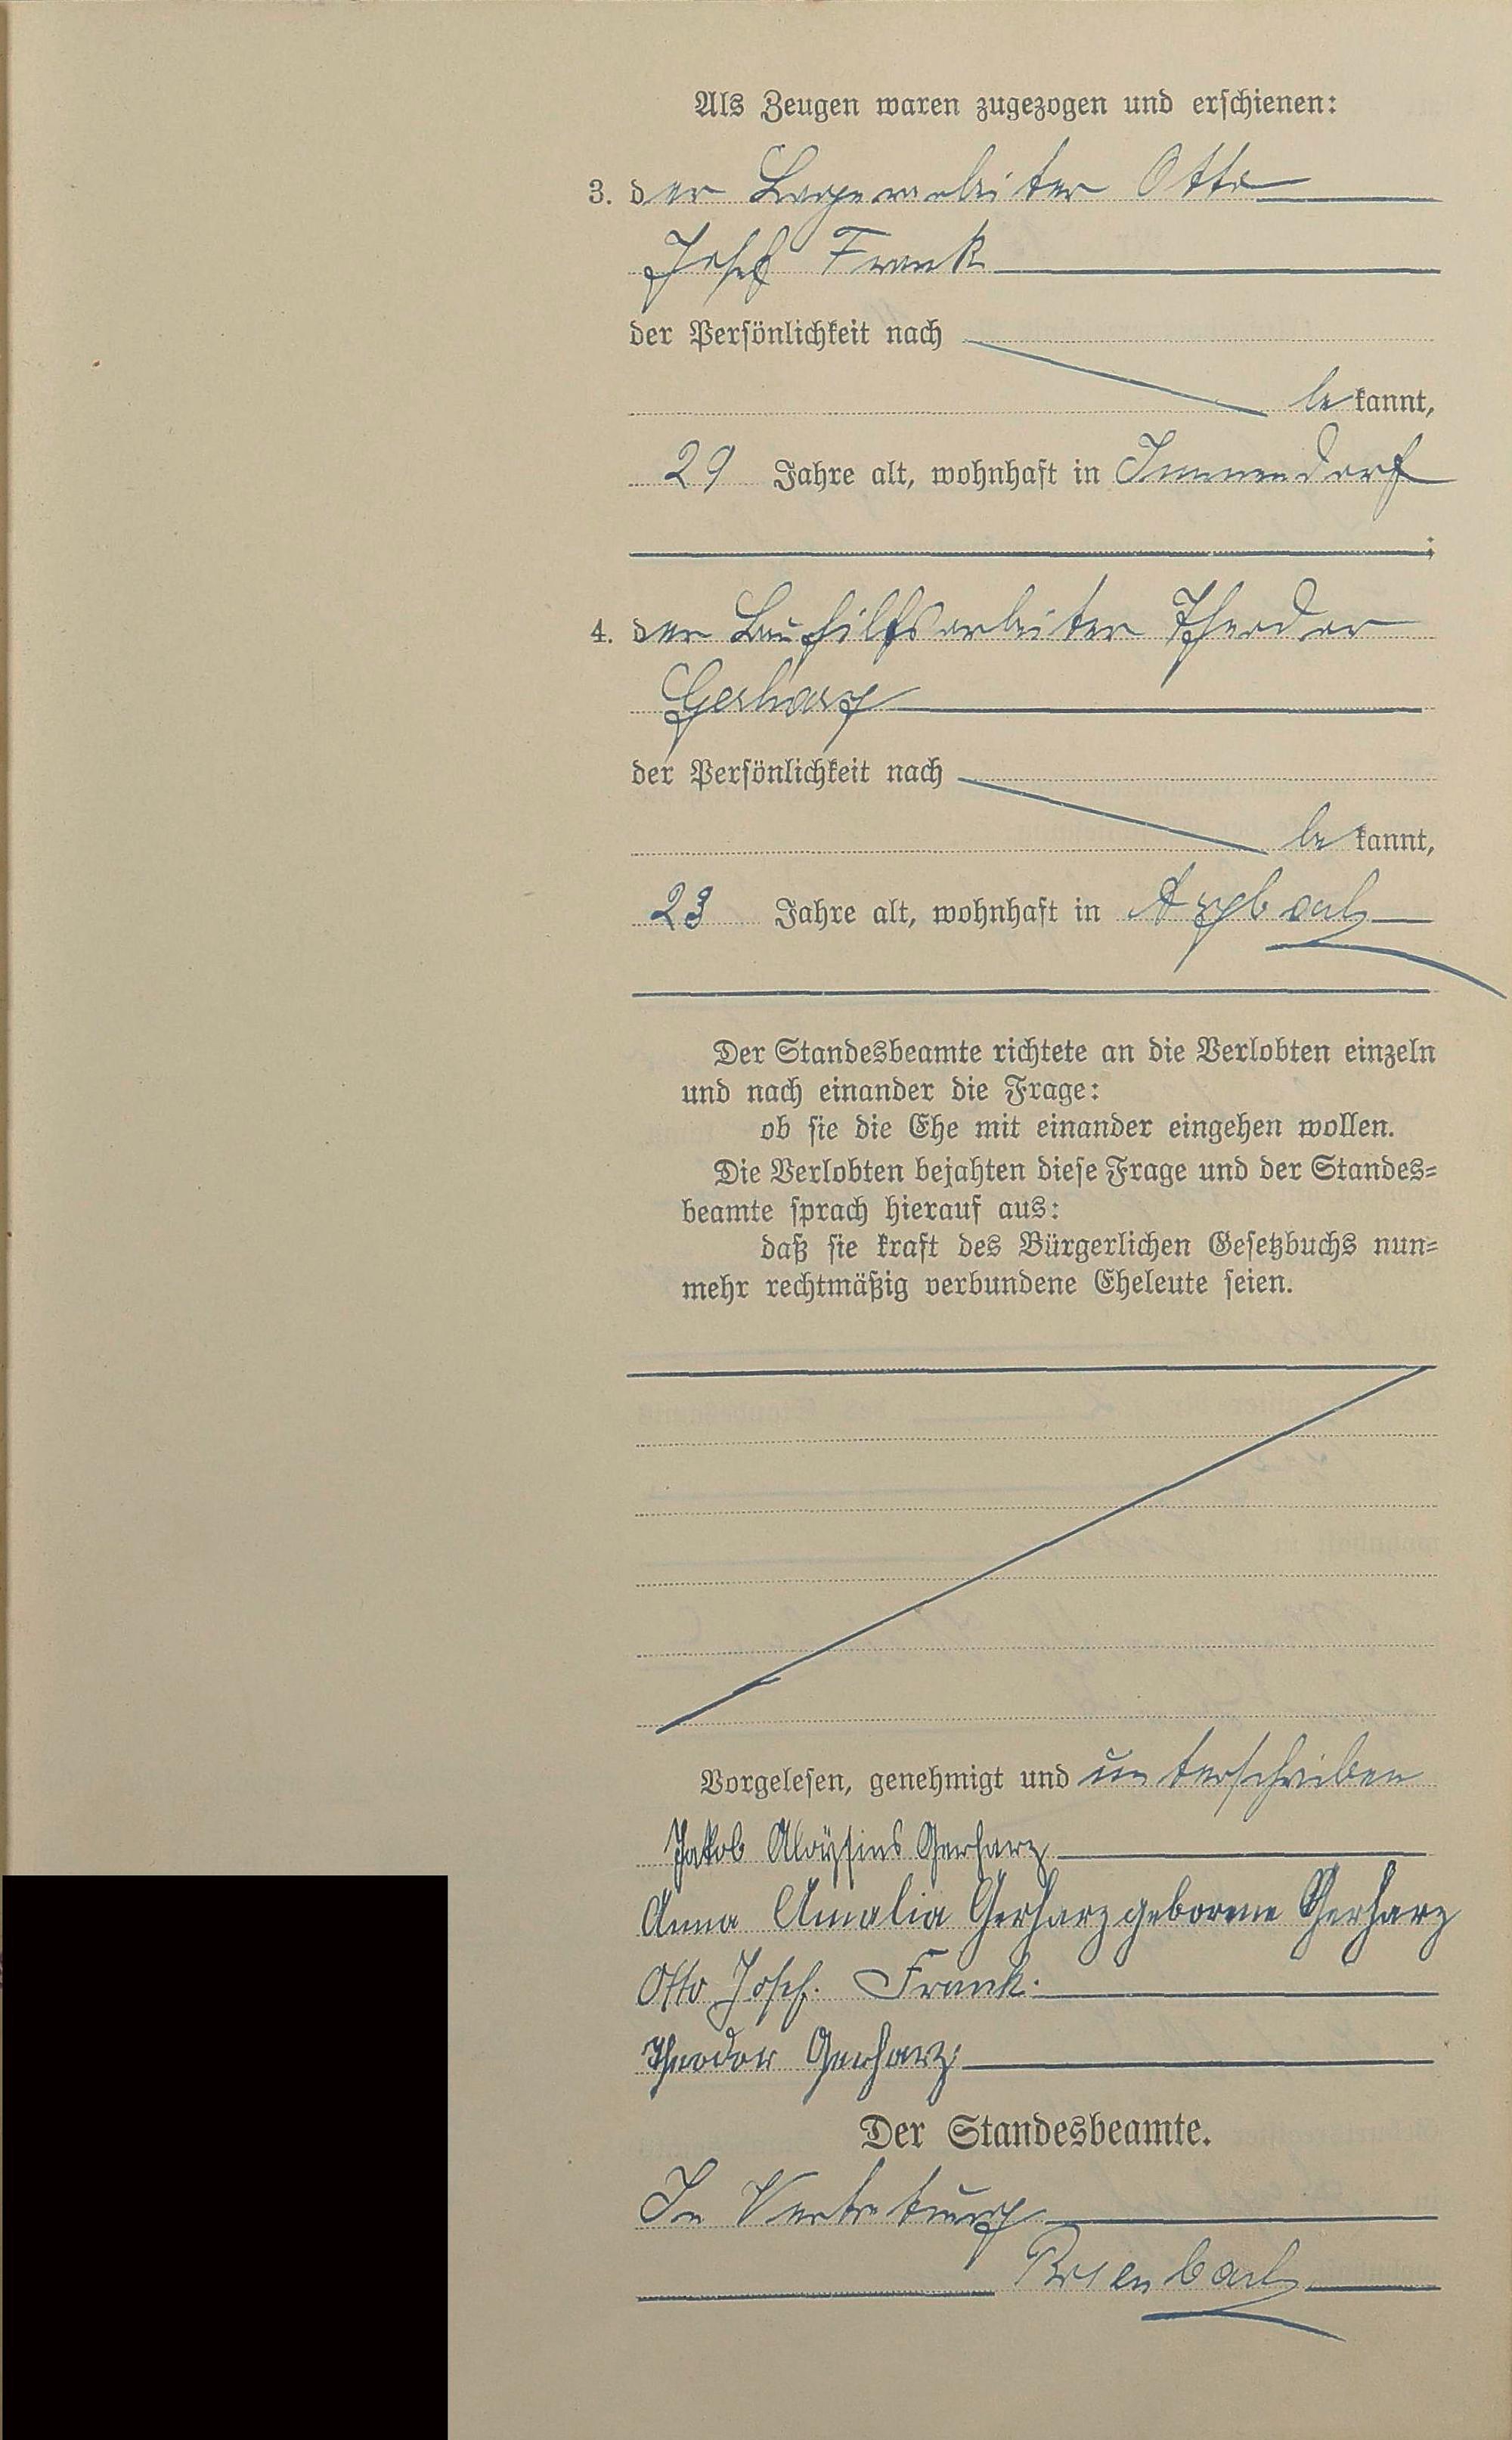 Als Zeugen waren zugezogen und erschienen:
3. der Lagerarbeiter Otto
Josef Frank
der Persönlichkeit nach
be kannt,
29 Jahre alt, wohnhaft in Immendorf
;
4. der Bauhilfsarbeiter Theodor
Gerharz
der Persönlichkeit nach
be kannt,
23 Jahre alt, wohnhaft in Arzbach
Der Standesbeamte richtete an die Verlobten einzeln
und nach einander die Frage:
ob sie die Ehe mit einander eingehen wollen.
Die Verlobten bejahten diese Frage und der Standes-
beamte sprach hierauf aus:
daß sie kraft des Bürgerlichen Gesetzbuchs nun-
mehr rechtmäßig verbundene Eheleute seien.
Vorgelesen, genehmigt und unterschrieben
Jakob Aloÿsius Gerharz
Anna Amalia Gerharz geborene Gerharz
Otto Josef. Frank.
Theodor Gerharz.
Der Standesbeamte.
In Vertretung